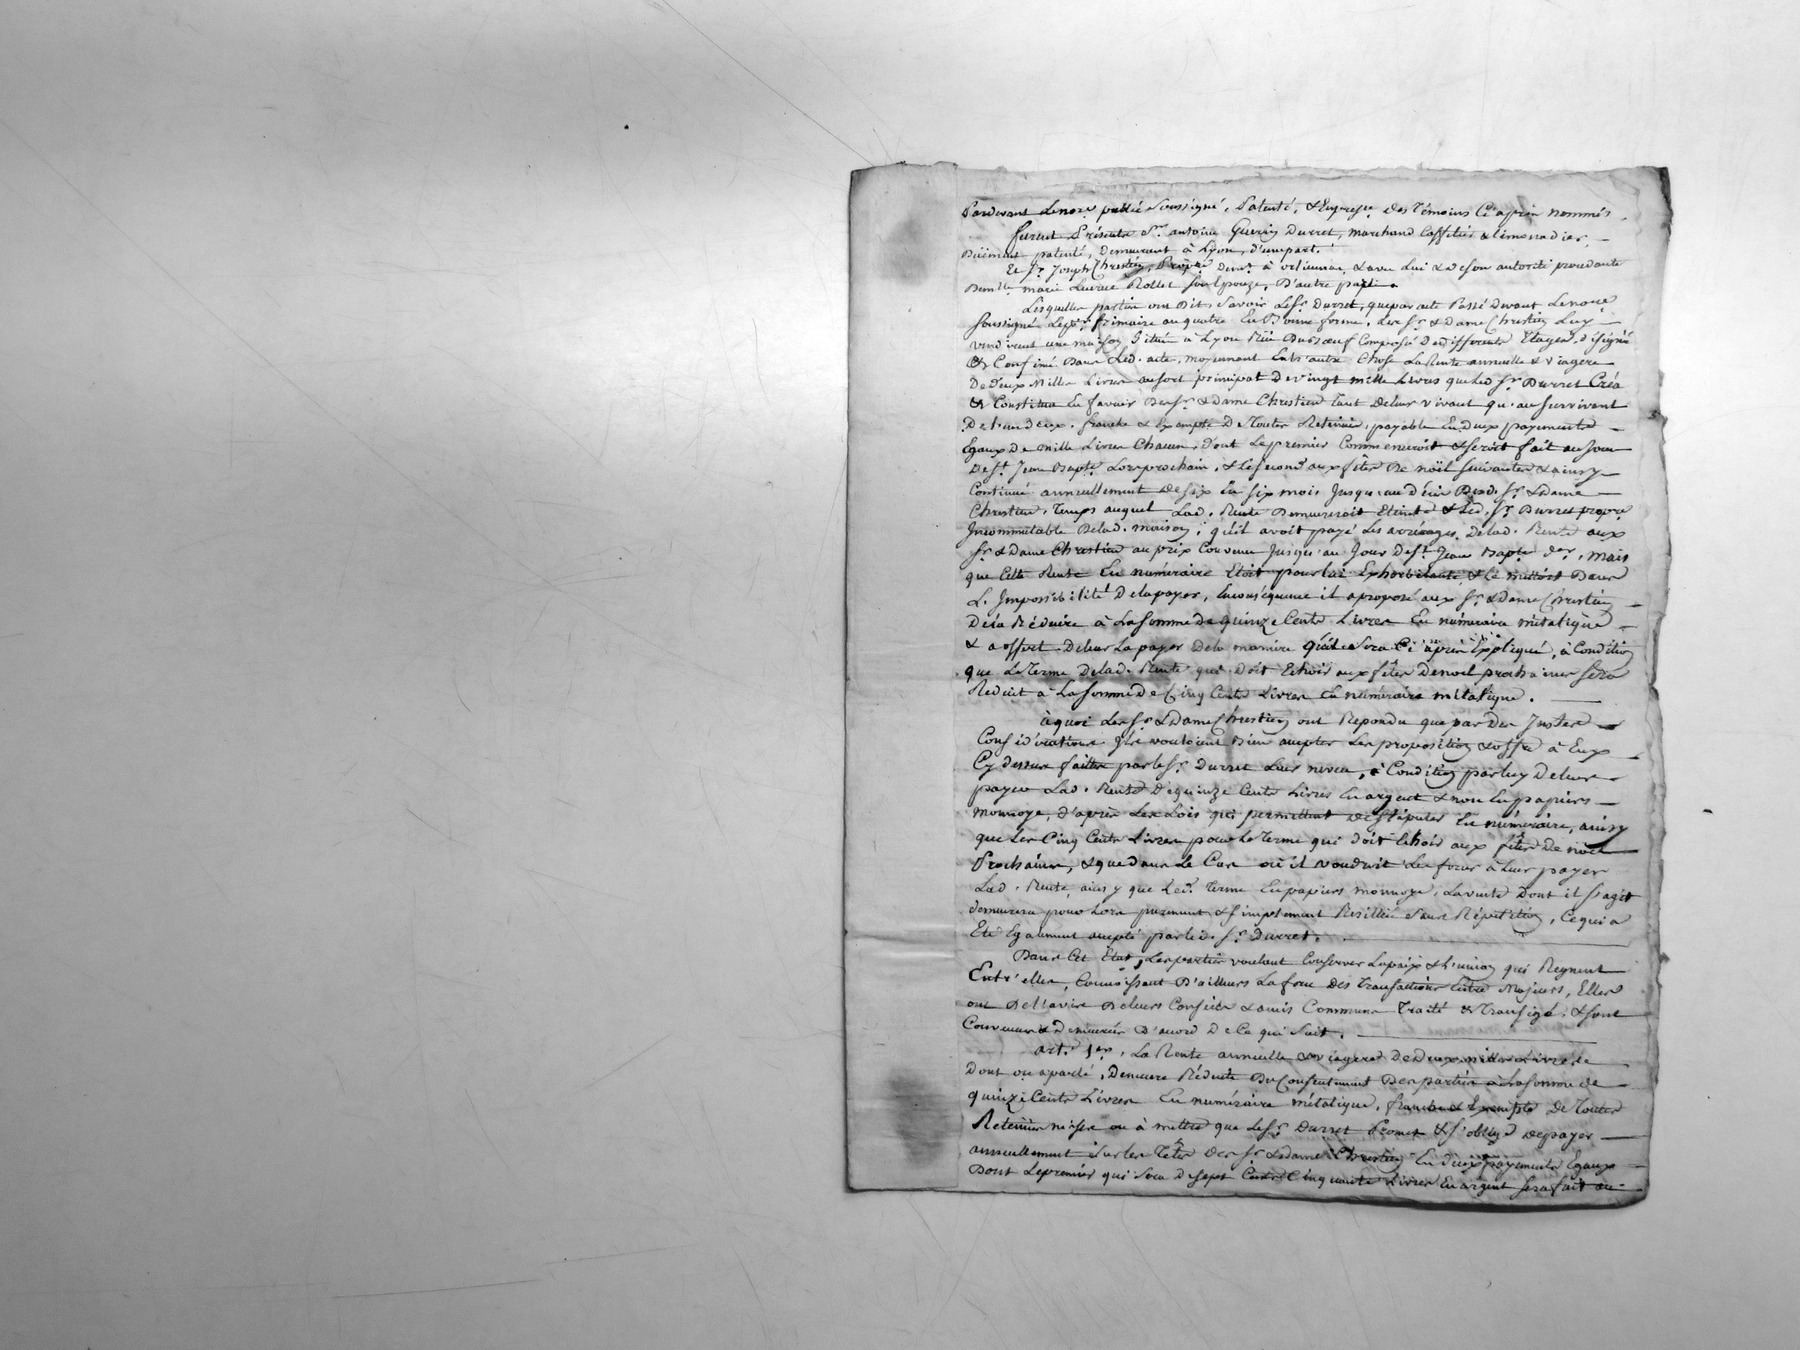 Pardevant Lenore public Soussigné, Patenté, & En presce des Témoins Ci après nommés
furent Présents Sr. antoine Guerin Durret, marchand Caffetier & limonadier,
Düement patenté, demeurant à Lyon, d'unepart.
Et Sr. Joseph Chrestien, Propre demt. à orliennas, & avec lui & de son autorité procedante
Demlle marie Rollet son Epouze, D'autre part
Lesquelles parties ont Dit, Savoir LeSr. Durret, que par acte Passé Devant Lenore
Soussigné Le frimaire an quatre En Bonne forme, Les Sr. & Dame Chrestien Luy
vendirent une maison Située à Lyon Rüe Du Bœuf Composée De différents Etages, désignée
& Confinée Dans Led. acte, moyennant Entr'autre Chose La Rente annuelle & viagere
De Deux Mille Livres au sort principal de vingt mille Livres que Led Sr. Durret Créa
& Constitua En faveur Des Sr. & Dame Chrestien tant De leur vivant qu'au Survivant
De l'un d'eux, franche & Exempte De Toutes Retenües, payable En Deux payements
Egaux De mille Livres Chacun, Dont Le premier Commenceroit & seroit fait au Jour
De St. Jean Bapte. Lors prochain, & Le second aux fêtes De noël suivantes & ainsy
Continué annuellement De six En six mois Jusques au décès Desd. Sr. & Dame
Chrestien, Temps auquel Lad. Rente Demeureroit Eteinte & Led. Sr. Durret propre
Incommutable De lad. maison; qu'il avoit payé Les arrérages De lad. Rente aux
Sr. & Dame Chrestien au prix Convenu Jusqu'au Jour De St. Jean Bapte der., mais
que Cette Rente En numéraire Etoit pour lui Exhorbitante, & Le mettoit Dans
L'Impossibilité De la payer, En conséquence il a proposé aux Sr. & Dame Chrestien
De la Réduire à La somme de quinze Cents Livres En numéraire métalique
& a offert De leur La payer De la maniere qu'il Sera Ci après Expliqué, à Condition
que Le Terme De lad. Rente qui Doit Echoir aux fêtes De noel prochaines sera
Reduit à La somme De Cinq Cents Livres En numéraire métalique.
à quoi Les Sr. & Dame Chrestien ont Repondu que par Des Justes
Considérations Ils vouloient Bien accepter Les proposition & offre à Eux
Cy dessus faittes par le Sr. Durret Leur neveu, à Condition par luy De leur
payer Lad. Rente De quinze Cents Livres En argent & non En papiers
monnoye, d'après Les Lois qui permettent De Stipuler En numéraire, ainsy
que Les Cinq Cents Livres pour Le Terme qui doit Echoir aux fêtes De noël
Prochaines, & que Dans Le Cas où il voudroit Les forcer à Leur payer
Lad. Rente, ainsy que Led. Terme En papiers monnoye, La vente Dont il s'agit
demeurera pour Lors purement & simplement Resiliée Sans Répétition, Ce qui a
Eté Egalement accepté par led. Sr. Durret.
Dans Cet Etat, Les parties voulant Conserver La paix & L'union qui Regnent
Entr'elles, Connoissant D'ailleurs La force Des Transactions Entre Majeurs, Elles
ont De l'avis De leurs Conseils & amis Communs Traité & Transigé; & sont
Convenues & Demeurées D'accord De Ce qui Suit.
art. 1er, La Rente annuelle & viagere De Deux mille Livres
Dont on a parlé, Demeure Réduite Du Consentement Des parties à La somme de
quinze Cents Livres En numéraire métalique, franche & Exempte De Toutes
Retenües mises ou à mettre que Le Sr. Durret Promet & s'oblige De payer
annuellement Sur les Têtes Des Sr. & Dame Chrestien En deux payements Egaux
Dont Le premier qui Sera De sept Cents Cinquante Livres En argent sera fait au